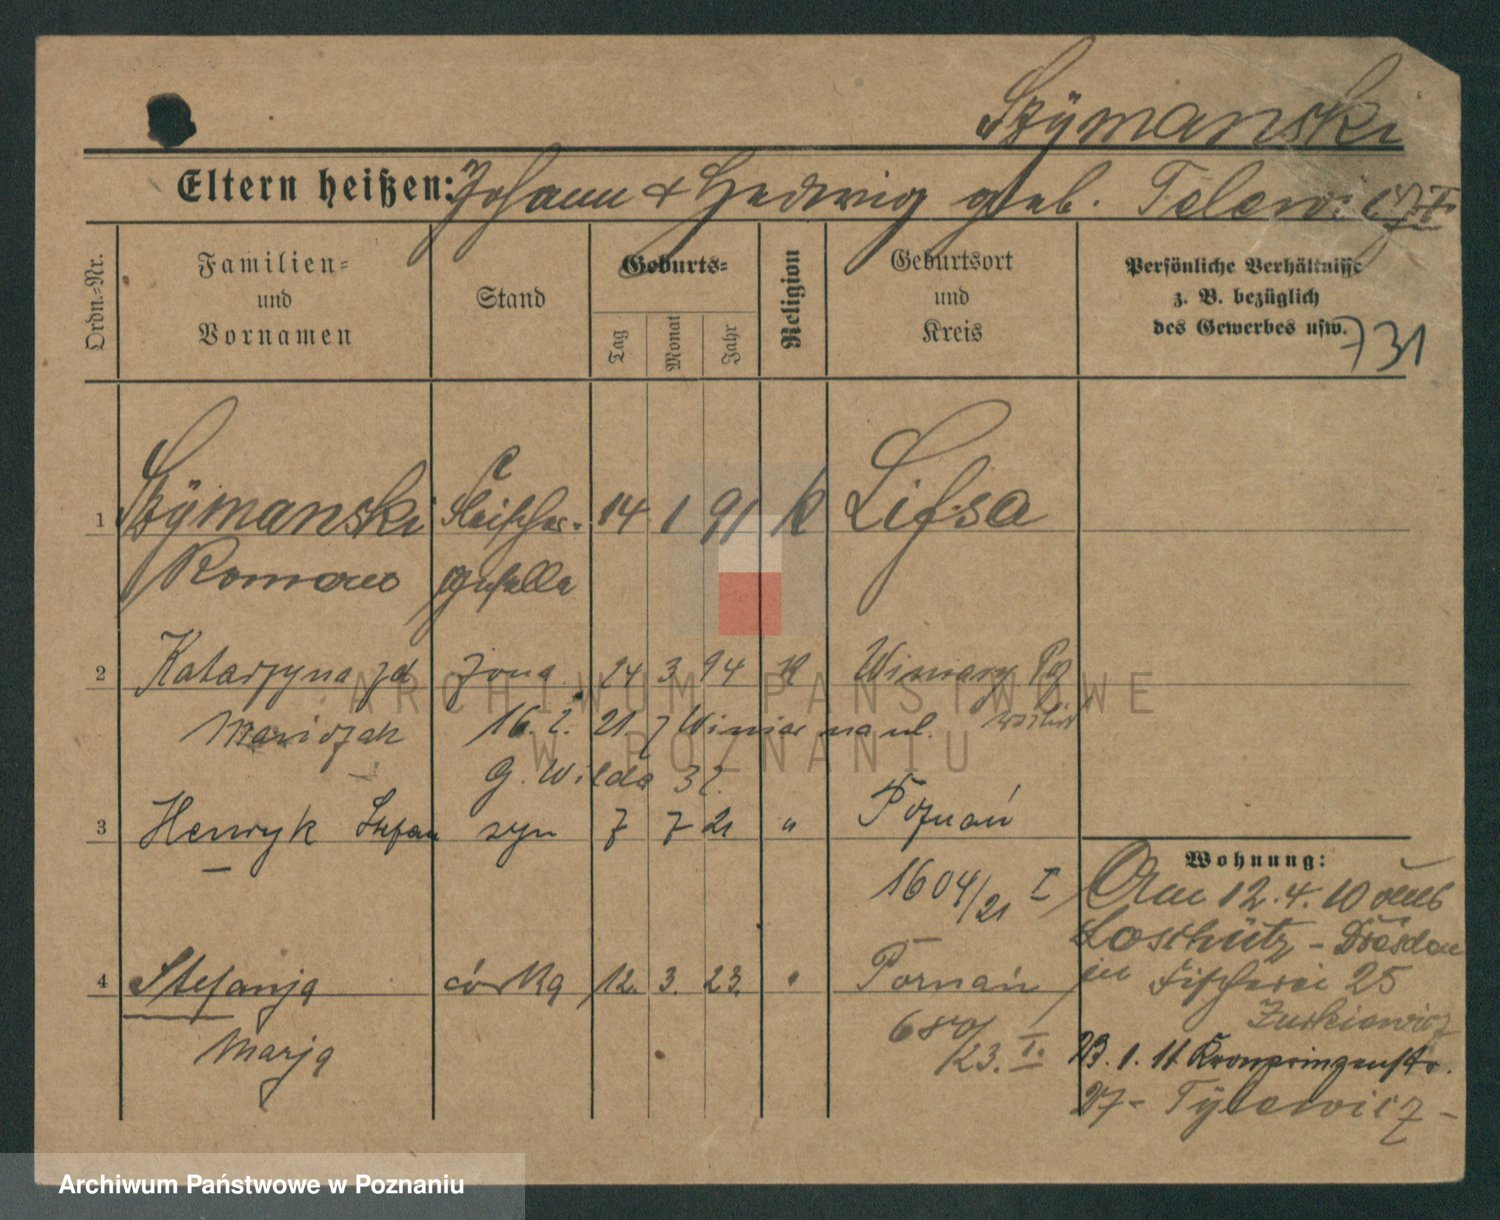 Szymanski
Eltern heißen: Johann & Hedwig geb.
Ordn.-Nr.
Familien-
und
Vornamen
Stand
Geburts-
Tag
Monat
Jahr
Religion
Geburtsort
und
Kreis
Persönliche Verhältnisse
z. B. bezüglich
des Gewerbes usw.
731
1 Szymanski Fleischer- 14 1 91 k Lissa
Roman geselle
2 Katarzyna zd żona 24 3 94 k Winiary
16. 2. 21. z Winiar na ul.
G. Wilda 32.
3 Henryk Stefan syn 7 7 21 " Poznań
1604/21 I
4 Stefanja córka 12. 3. 23. " Poznań
Marja
680/23. I.
Wohnung:
12.4.10
Loschütz - Dresden
in 25
23.1.11 Kronprinzenstr.
27-
ARCHIWUM PAŃSTWOWE
W POZNANIU
Archiwum Państwowe w Poznaniu